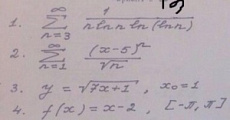 1. \sum_{n=3}^{\infty} \frac{1}{n \ln n \ln (\ln n)}
2. \sum_{n=1}^{\infty} \frac{(x-5)^n}{\sqrt{n}}
3. y = \sqrt{7x+1}, x_0=1
4. f(x) = x-2, [-π, π]